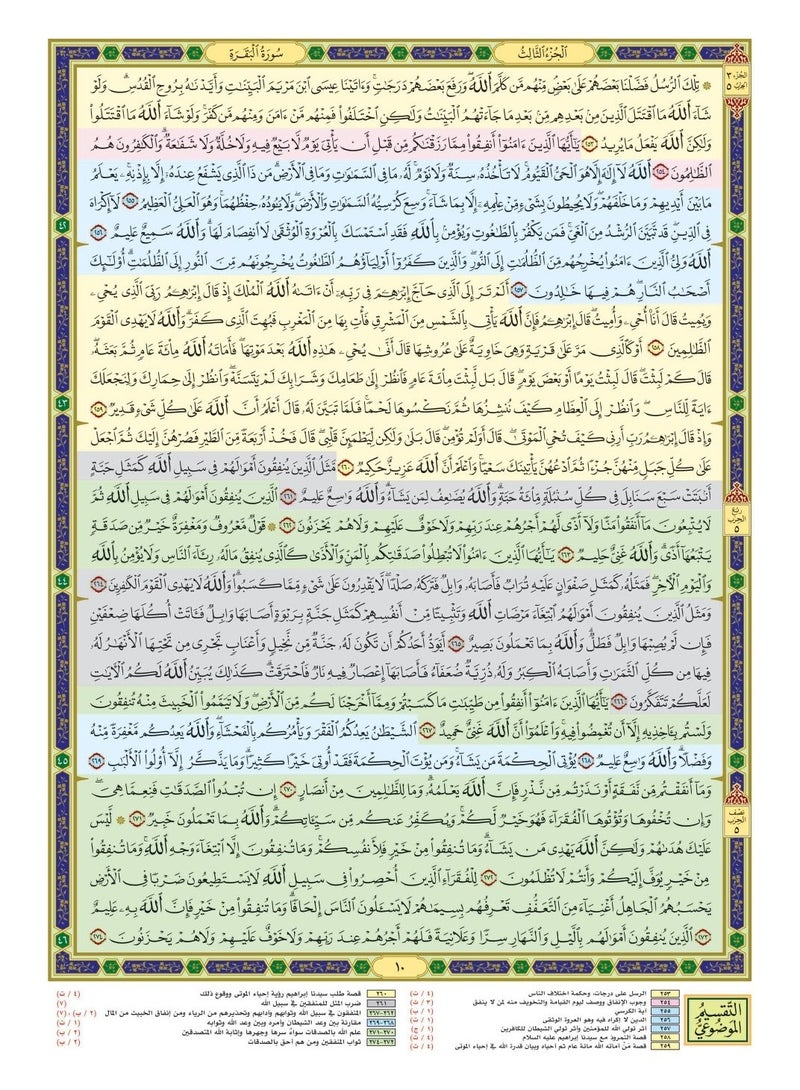 سُورَةُ البَقَرَةِ
الجُزْءُ الثَّالِثُ
الجزء ٣
الحزب ٥
۞ تِلْكَ ٱلرُّسُلُ فَضَّلْنَا بَعْضَهُمْ عَلَىٰ بَعْضٍۘ مِّنْهُم مَّن كَلَّمَ ٱللَّهُۖ وَرَفَعَ بَعْضَهُمْ دَرَجَٰتٍۚ وَءَاتَيْنَا عِيسَى ٱبْنَ مَرْيَمَ ٱلْبَيِّنَٰتِ وَأَيَّدْنَٰهُ بِرُوحِ ٱلْقُدُسِۗ وَلَوْ
شَآءَ ٱللَّهُ مَا ٱقْتَتَلَ ٱلَّذِينَ مِنۢ بَعْدِهِم مِّنۢ بَعْدِ مَا جَآءَتْهُمُ ٱلْبَيِّنَٰتُ وَلَٰكِنِ ٱخْتَلَفُوا۟ فَمِنْهُم مَّنْ ءَامَنَ وَمِنْهُم مَّن كَفَرَۚ وَلَوْ شَآءَ ٱللَّهُ مَا ٱقْتَتَلُوا۟
وَلَٰكِنَّ ٱللَّهَ يَفْعَلُ مَا يُرِيدُ ٢٥٣ يَٰٓأَيُّهَا ٱلَّذِينَ ءَامَنُوٓا۟ أَنفِقُوا۟ مِمَّا رَزَقْنَٰكُم مِّن قَبْلِ أَن يَأْتِىَ يَوْمٌ لَّا بَيْعٌ فِيهِ وَلَا خُلَّةٌ وَلَا شَفَٰعَةٌۗ وَٱلْكَٰفِرُونَ هُمُ
ٱلظَّٰلِمُونَ ٢٥٤ ٱللَّهُ لَآ إِلَٰهَ إِلَّا هُوَ ٱلْحَىُّ ٱلْقَيُّومُۚ لَا تَأْخُذُهُۥ سِنَةٌ وَلَا نَوْمٌۚ لَّهُۥ مَا فِى ٱلسَّمَٰوَٰتِ وَمَا فِى ٱلْأَرْضِۗ مَن ذَا ٱلَّذِى يَشْفَعُ عِندَهُۥٓ إِلَّا بِإِذْنِهِۦۚ يَعْلَمُ
مَا بَيْنَ أَيْدِيهِمْ وَمَا خَلْفَهُمْۖ وَلَا يُحِيطُونَ بِشَىْءٍ مِّنْ عِلْمِهِۦٓ إِلَّا بِمَا شَآءَۚ وَسِعَ كُرْسِيُّهُ ٱلسَّمَٰوَٰتِ وَٱلْأَرْضَۖ وَلَا يَـُٔودُهُۥ حِفْظُهُمَاۚ وَهُوَ ٱلْعَلِىُّ ٱلْعَظِيمُ ٢٥٥ لَآ إِكْرَاهَ
فِى ٱلدِّينِۖ قَد تَّبَيَّنَ ٱلرُّشْدُ مِنَ ٱلْغَىِّۚ فَمَن يَكْفُرْ بِٱلطَّٰغُوتِ وَيُؤْمِنۢ بِٱللَّهِ فَقَدِ ٱسْتَمْسَكَ بِٱلْعُرْوَةِ ٱلْوُثْقَىٰ لَا ٱنفِصَامَ لَهَاۗ وَٱللَّهُ سَمِيعٌ عَلِيمٌ ٢٥٦
ٱللَّهُ وَلِىُّ ٱلَّذِينَ ءَامَنُوا۟ يُخْرِجُهُم مِّنَ ٱلظُّلُمَٰتِ إِلَى ٱلنُّورِۖ وَٱلَّذِينَ كَفَرُوٓا۟ أَوْلِيَآؤُهُمُ ٱلطَّٰغُوتُ يُخْرِجُونَهُم مِّنَ ٱلنُّورِ إِلَى ٱلظُّلُمَٰتِۗ أُو۟لَٰٓئِكَ
أَصْحَٰبُ ٱلنَّارِۖ هُمْ فِيهَا خَٰلِدُونَ ٢٥٧ أَلَمْ تَرَ إِلَى ٱلَّذِى حَآجَّ إِبْرَٰهِـۧمَ فِى رَبِّهِۦٓ أَنْ ءَاتَىٰهُ ٱللَّهُ ٱلْمُلْكَ إِذْ قَالَ إِبْرَٰهِـۧمُ رَبِّىَ ٱلَّذِى يُحْىِۦ
وَيُمِيتُ قَالَ أَنَا۠ أُحْىِۦ وَأُمِيتُۖ قَالَ إِبْرَٰهِـۧمُ فَإِنَّ ٱللَّهَ يَأْتِى بِٱلشَّمْسِ مِنَ ٱلْمَشْرِقِ فَأْتِ بِهَا مِنَ ٱلْمَغْرِبِ فَبُهِتَ ٱلَّذِى كَفَرَۗ وَٱللَّهُ لَا يَهْدِى ٱلْقَوْمَ
ٱلظَّٰلِمِينَ ٢٥٨ أَوْ كَٱلَّذِى مَرَّ عَلَىٰ قَرْيَةٍ وَهِىَ خَاوِيَةٌ عَلَىٰ عُرُوشِهَا قَالَ أَنَّىٰ يُحْىِۦ هَٰذِهِ ٱللَّهُ بَعْدَ مَوْتِهَاۖ فَأَمَاتَهُ ٱللَّهُ مِا۟ئَةَ عَامٍ ثُمَّ بَعَثَهُۥۖ
قَالَ كَمْ لَبِثْتَۖ قَالَ لَبِثْتُ يَوْمًا أَوْ بَعْضَ يَوْمٍۖ قَالَ بَل لَّبِثْتَ مِا۟ئَةَ عَامٍ فَٱنظُرْ إِلَىٰ طَعَامِكَ وَشَرَابِكَ لَمْ يَتَسَنَّهْۖ وَٱنظُرْ إِلَىٰ حِمَارِكَ وَلِنَجْعَلَكَ
ءَايَةً لِّلنَّاسِۖ وَٱنظُرْ إِلَى ٱلْعِظَامِ كَيْفَ نُنشِزُهَا ثُمَّ نَكْسُوهَا لَحْمًاۚ فَلَمَّا تَبَيَّنَ لَهُۥ قَالَ أَعْلَمُ أَنَّ ٱللَّهَ عَلَىٰ كُلِّ شَىْءٍ قَدِيرٌ ٢٥٩
وَإِذْ قَالَ إِبْرَٰهِـۧمُ رَبِّ أَرِنِى كَيْفَ تُحْىِ ٱلْمَوْتَىٰۖ قَالَ أَوَلَمْ تُؤْمِنۖ قَالَ بَلَىٰ وَلَٰكِن لِّيَطْمَئِنَّ قَلْبِىۖ قَالَ فَخُذْ أَرْبَعَةً مِّنَ ٱلطَّيْرِ فَصُرْهُنَّ إِلَيْكَ ثُمَّ ٱجْعَلْ
عَلَىٰ كُلِّ جَبَلٍ مِّنْهُنَّ جُزْءًا ثُمَّ ٱدْعُهُنَّ يَأْتِينَكَ سَعْيًاۚ وَٱعْلَمْ أَنَّ ٱللَّهَ عَزِيزٌ حَكِيمٌ ٢٦٠ مَّثَلُ ٱلَّذِينَ يُنفِقُونَ أَمْوَٰلَهُمْ فِى سَبِيلِ ٱللَّهِ كَمَثَلِ حَبَّةٍ
أَنۢبَتَتْ سَبْعَ سَنَابِلَ فِى كُلِّ سُنۢبُلَةٍ مِّا۟ئَةُ حَبَّةٍۗ وَٱللَّهُ يُضَٰعِفُ لِمَن يَشَآءُۗ وَٱللَّهُ وَٰسِعٌ عَلِيمٌ ٢٦١ ٱلَّذِينَ يُنفِقُونَ أَمْوَٰلَهُمْ فِى سَبِيلِ ٱللَّهِ ثُمَّ
لَا يُتْبِعُونَ مَآ أَنفَقُوا۟ مَنًّا وَلَآ أَذًىۙ لَّهُمْ أَجْرُهُمْ عِندَ رَبِّهِمْ وَلَا خَوْفٌ عَلَيْهِمْ وَلَا هُمْ يَحْزَنُونَ ٢٦٢ ۞ قَوْلٌ مَّعْرُوفٌ وَمَغْفِرَةٌ خَيْرٌ مِّن صَدَقَةٍ
يَتْبَعُهَآ أَذًىۗ وَٱللَّهُ غَنِىٌّ حَلِيمٌ ٢٦٣ يَٰٓأَيُّهَا ٱلَّذِينَ ءَامَنُوا۟ لَا تُبْطِلُوا۟ صَدَقَٰتِكُم بِٱلْمَنِّ وَٱلْأَذَىٰ كَٱلَّذِى يُنفِقُ مَالَهُۥ رِئَآءَ ٱلنَّاسِ وَلَا يُؤْمِنُ بِٱللَّهِ
وَٱلْيَوْمِ ٱلْءَاخِرِۖ فَمَثَلُهُۥ كَمَثَلِ صَفْوَانٍ عَلَيْهِ تُرَابٌ فَأَصَابَهُۥ وَابِلٌ فَتَرَكَهُۥ صَلْدًاۖ لَّا يَقْدِرُونَ عَلَىٰ شَىْءٍ مِّمَّا كَسَبُوا۟ۗ وَٱللَّهُ لَا يَهْدِى ٱلْقَوْمَ ٱلْكَٰفِرِينَ ٢٦٤
وَمَثَلُ ٱلَّذِينَ يُنفِقُونَ أَمْوَٰلَهُمُ ٱبْتِغَآءَ مَرْضَاتِ ٱللَّهِ وَتَثْبِيتًا مِّنْ أَنفُسِهِمْ كَمَثَلِ جَنَّةٍۭ بِرَبْوَةٍ أَصَابَهَا وَابِلٌ فَـَٔاتَتْ أُكُلَهَا ضِعْفَيْنِ
فَإِن لَّمْ يُصِبْهَا وَابِلٌ فَطَلٌّۗ وَٱللَّهُ بِمَا تَعْمَلُونَ بَصِيرٌ ٢٦٥ أَيَوَدُّ أَحَدُكُمْ أَن تَكُونَ لَهُۥ جَنَّةٌ مِّن نَّخِيلٍ وَأَعْنَابٍ تَجْرِى مِن تَحْتِهَا ٱلْأَنْهَٰرُ لَهُۥ
فِيهَا مِن كُلِّ ٱلثَّمَرَٰتِ وَأَصَابَهُ ٱلْكِبَرُ وَلَهُۥ ذُرِّيَّةٌ ضُعَفَآءُ فَأَصَابَهَآ إِعْصَارٌ فِيهِ نَارٌ فَٱحْتَرَقَتْۗ كَذَٰلِكَ يُبَيِّنُ ٱللَّهُ لَكُمُ ٱلْءَايَٰتِ
لَعَلَّكُمْ تَتَفَكَّرُونَ ٢٦٦ يَٰٓأَيُّهَا ٱلَّذِينَ ءَامَنُوٓا۟ أَنفِقُوا۟ مِن طَيِّبَٰتِ مَا كَسَبْتُمْ وَمِمَّآ أَخْرَجْنَا لَكُم مِّنَ ٱلْأَرْضِۖ وَلَا تَيَمَّمُوا۟ ٱلْخَبِيثَ مِنْهُ تُنفِقُونَ
وَلَسْتُم بِـَٔاخِذِيهِ إِلَّآ أَن تُغْمِضُوا۟ فِيهِۚ وَٱعْلَمُوٓا۟ أَنَّ ٱللَّهَ غَنِىٌّ حَمِيدٌ ٢٦٧ ٱلشَّيْطَٰنُ يَعِدُكُمُ ٱلْفَقْرَ وَيَأْمُرُكُم بِٱلْفَحْشَآءِۖ وَٱللَّهُ يَعِدُكُم مَّغْفِرَةً مِّنْهُ
وَفَضْلًاۗ وَٱللَّهُ وَٰسِعٌ عَلِيمٌ ٢٦٨ يُؤْتِى ٱلْحِكْمَةَ مَن يَشَآءُۚ وَمَن يُؤْتَ ٱلْحِكْمَةَ فَقَدْ أُوتِىَ خَيْرًا كَثِيرًاۗ وَمَا يَذَّكَّرُ إِلَّآ أُو۟لُوا۟ ٱلْأَلْبَٰبِ ٢٦٩
وَمَآ أَنفَقْتُم مِّن نَّفَقَةٍ أَوْ نَذَرْتُم مِّن نَّذْرٍ فَإِنَّ ٱللَّهَ يَعْلَمُهُۥۗ وَمَا لِلظَّٰلِمِينَ مِنْ أَنصَارٍ ٢٧٠ إِن تُبْدُوا۟ ٱلصَّدَقَٰتِ فَنِعِمَّا هِىَۖ
وَإِن تُخْفُوهَا وَتُؤْتُوهَا ٱلْفُقَرَآءَ فَهُوَ خَيْرٌ لَّكُمْۚ وَيُكَفِّرُ عَنكُم مِّن سَيِّـَٔاتِكُمْۗ وَٱللَّهُ بِمَا تَعْمَلُونَ خَبِيرٌ ٢٧١ ۞ لَّيْسَ
عَلَيْكَ هُدَىٰهُمْ وَلَٰكِنَّ ٱللَّهَ يَهْدِى مَن يَشَآءُۗ وَمَا تُنفِقُوا۟ مِنْ خَيْرٍ فَلِأَنفُسِكُمْۚ وَمَا تُنفِقُونَ إِلَّا ٱبْتِغَآءَ وَجْهِ ٱللَّهِۚ وَمَا تُنفِقُوا۟
مِنْ خَيْرٍ يُوَفَّ إِلَيْكُمْ وَأَنتُمْ لَا تُظْلَمُونَ ٢٧٢ لِلْفُقَرَآءِ ٱلَّذِينَ أُحْصِرُوا۟ فِى سَبِيلِ ٱللَّهِ لَا يَسْتَطِيعُونَ ضَرْبًا فِى ٱلْأَرْضِ
يَحْسَبُهُمُ ٱلْجَاهِلُ أَغْنِيَآءَ مِنَ ٱلتَّعَفُّفِ تَعْرِفُهُم بِسِيمَٰهُمْ لَا يَسْـَٔلُونَ ٱلنَّاسَ إِلْحَافًاۗ وَمَا تُنفِقُوا۟ مِنْ خَيْرٍ فَإِنَّ ٱللَّهَ بِهِۦ عَلِيمٌ
٢٧٣ ٱلَّذِينَ يُنفِقُونَ أَمْوَٰلَهُم بِٱلَّيْلِ وَٱلنَّهَارِ سِرًّا وَعَلَانِيَةً فَلَهُمْ أَجْرُهُمْ عِندَ رَبِّهِمْ وَلَا خَوْفٌ عَلَيْهِمْ وَلَا هُمْ يَحْزَنُونَ ٢٧٤
ربع
الحزب
٥
نصف
الحزب
٥
٤٢
٤٣
٤٤
٤٥
٤٦
١٠
التَّقسِيمُ
المَوضُوعِيُّ
٢٥٣ الرسل على درجات، وحكمة اختلاف الناس (٤ / ت)
٢٥٤ وجوب الإنفاق ووصف ليوم القيامة والتخويف منه لمن لا ينفق (٣ / ت)
٢٥٥ آية الكرسي (١ / ب)
٢٥٦ الدين لا إكراه فيه وهو العروة الوثقى (١ / ت)
٢٥٧ أثر تولي الله للمؤمنين وأثر تولي الشيطان للكافرين (١ / ج)
٢٥٨ قصة النمرود مع سيدنا إبراهيم عليه السلام (٤ / ت)
٢٥٩ قصة من أماته الله مائة عام ثم أحياه وبيان قدرة الله في إحياء الموتى (٤ / ت)
٢٦٠ قصة طلب سيدنا إبراهيم رؤية إحياء الموتى ووقوع ذلك (٤ / ت)
٢٦١ ضرب المثل للمنفقين في سبيل الله (٧)
٢٦٢-٢٦٧ المنفقون في سبيل الله وثوابهم وآدابهم وتحذيرهم من الرياء ومن إنفاق الخبيث من المال (٢ / ب)؛(٧)
٢٦٨-٢٦٩ مقارنة بين وعد الشيطان وأمره وبين وعد الله وثوابه (١ / ت)
٢٧٠-٢٧١ علم الله بالصدقات سواءً سرها وجهرها وإثابة الله المتصدقين (٢ / ب)
٢٧٢-٢٧٤ ثواب المنفقين ومن هم أحق بالصدقات (٢ / ب)